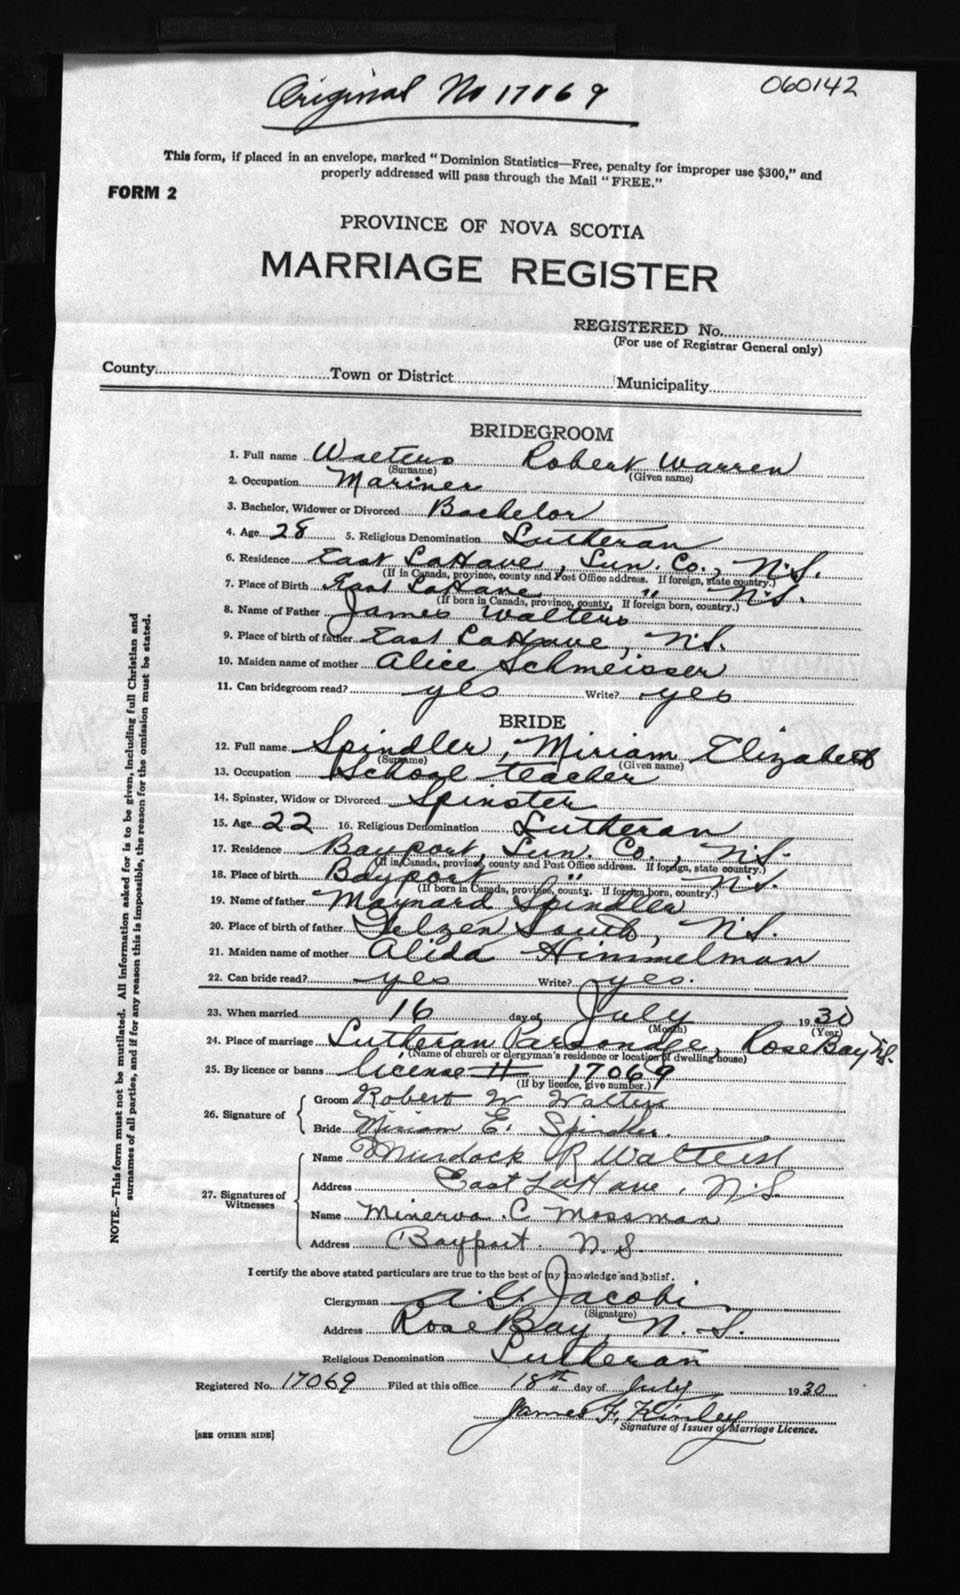 Original No 17069
060142
This form, if placed in an envelope, marked "Dominion Statistics—Free, penalty for improper use $300," and
properly addressed will pass through the Mail "FREE."
FORM 2
PROVINCE OF NOVA SCOTIA
MARRIAGE REGISTER
REGISTERED No.
(For use of Registrar General only)
County Town or District Municipality
BRIDEGROOM
1. Full name Walters Robert Warren
(Surname) (Given name)
2. Occupation Mariner
3. Bachelor, Widower or Divorced Bachelor
4. Age 28 5. Religious Denomination Lutheran
6. Residence East LaHave, Lun. Co., N.S.
(If in Canada, province, county and Post Office address. If foreign, state country.)
7. Place of Birth East LaHave " N.S.
(If born in Canada, province, county. If foreign born, country.)
8. Name of Father James Walters
9. Place of birth of father East LaHave, N.S.
10. Maiden name of mother Alice Schmeisser
11. Can bridegroom read? yes Write? yes
BRIDE
12. Full name Spindler, Miriam Elizabeth
(Surname) (Given name)
13. Occupation School teacher
14. Spinster, Widow or Divorced Spinster
15. Age 22 16. Religious Denomination Lutheran
17. Residence Bayport, Lun. Co., N.S.
(If in Canada, province, county and Post Office address. If foreign, state country.)
18. Place of birth Bayport " N.S.
(If born in Canada, province, county. If foreign born, country.)
19. Name of father Maynard Spindler
20. Place of birth of father Felzen South, N.S.
21. Maiden name of mother Alida Himmelman
22. Can bride read? yes Write? yes.
23. When married 16 day of July 1930
(Month) (Year)
24. Place of marriage Lutheran Parsonage, Rose Bay N.S.
(Name of church or clergyman's residence or location of dwelling house)
25. By licence or banns license # 17069
(If by licence, give number.)
26. Signature of
Groom Robert W Walters
Bride Miriam E. Spindler.
27. Signatures of Witnesses
Name Murdock R Walters
Address East LaHave, N.S.
Name Minerva C Mossman
Address Bayport. N.S.
I certify the above stated particulars are true to the best of my knowledge and belief.
Clergyman A. G. Jacobi
(Signature)
Address Rose Bay, N. S.
Religious Denomination Lutheran
Registered No. 17069 Filed at this office 18th day of July 1930
James F. Kinley
Signature of Issuer of Marriage Licence.
[SEE OTHER SIDE]
NOTE.—This form must not be mutilated. All information asked for is to be given, including full Christian and
surnames of all parties, and if for any reason this is impossible, the reason for the omission must be stated.